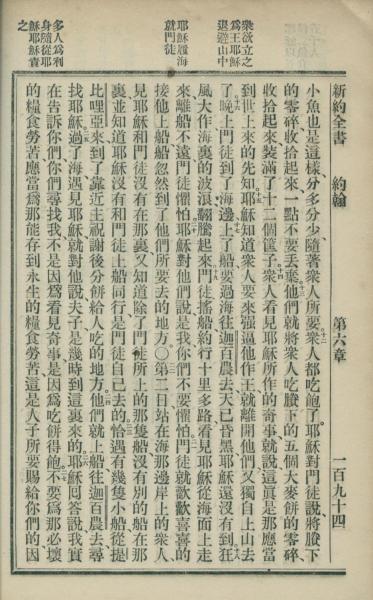 新約全書 約翰 第六章 一百九十四
小魚也是這樣分多分少隨著衆人所要衆人都吃飽了耶穌對門徒說將賸下
的零碎收拾起來一點不要丟棄他們就將衆人吃賸下的五個大麥餅的零碎
收拾起來裝滿了十二個筐子衆人看見耶穌所作的奇事就說這眞是那應當
到世上來的先知耶穌知道衆人要來强逼他作王就離開他們又獨自上山去
了晚上門徒到了海邊上了船要過海往迦百農去天已昏黑耶穌還沒有到狂
風大作海裏的波浪翻騰起來門徒搖船約行十里多路看見耶穌從海面上走
來離船不遠門徒懼怕耶穌對他們說是我你們不要懼怕門徒就歡歡喜喜的
接他上船船忽然到了他們所要去的地方〇第二日站在海那邊岸上的衆人
見耶穌和門徒沒有在那裏又知道除了門徒所上的那隻船沒有別的船在那
裏並知道耶穌沒有和門徒上船同行是門徒自己去的恰遇有幾隻小船從提
比哩亞來到了靠近主祝謝後分餅給人吃的地方他們就上船往迦百農去尋
找耶穌過了海遇見耶穌就對他說夫子是幾時到這裏來的耶穌回答說我實
在告訴你們你們尋找我不是因爲看見奇事是因爲吃餅得飽不要爲那必壞
的糧食勞苦應當爲那能存到永生的糧食勞苦這是人子所要賜給你們的因
衆欲立之
爲王耶穌
退避山中
耶穌履海
就門徒
多人爲利
身隨從耶
穌耶穌責
之